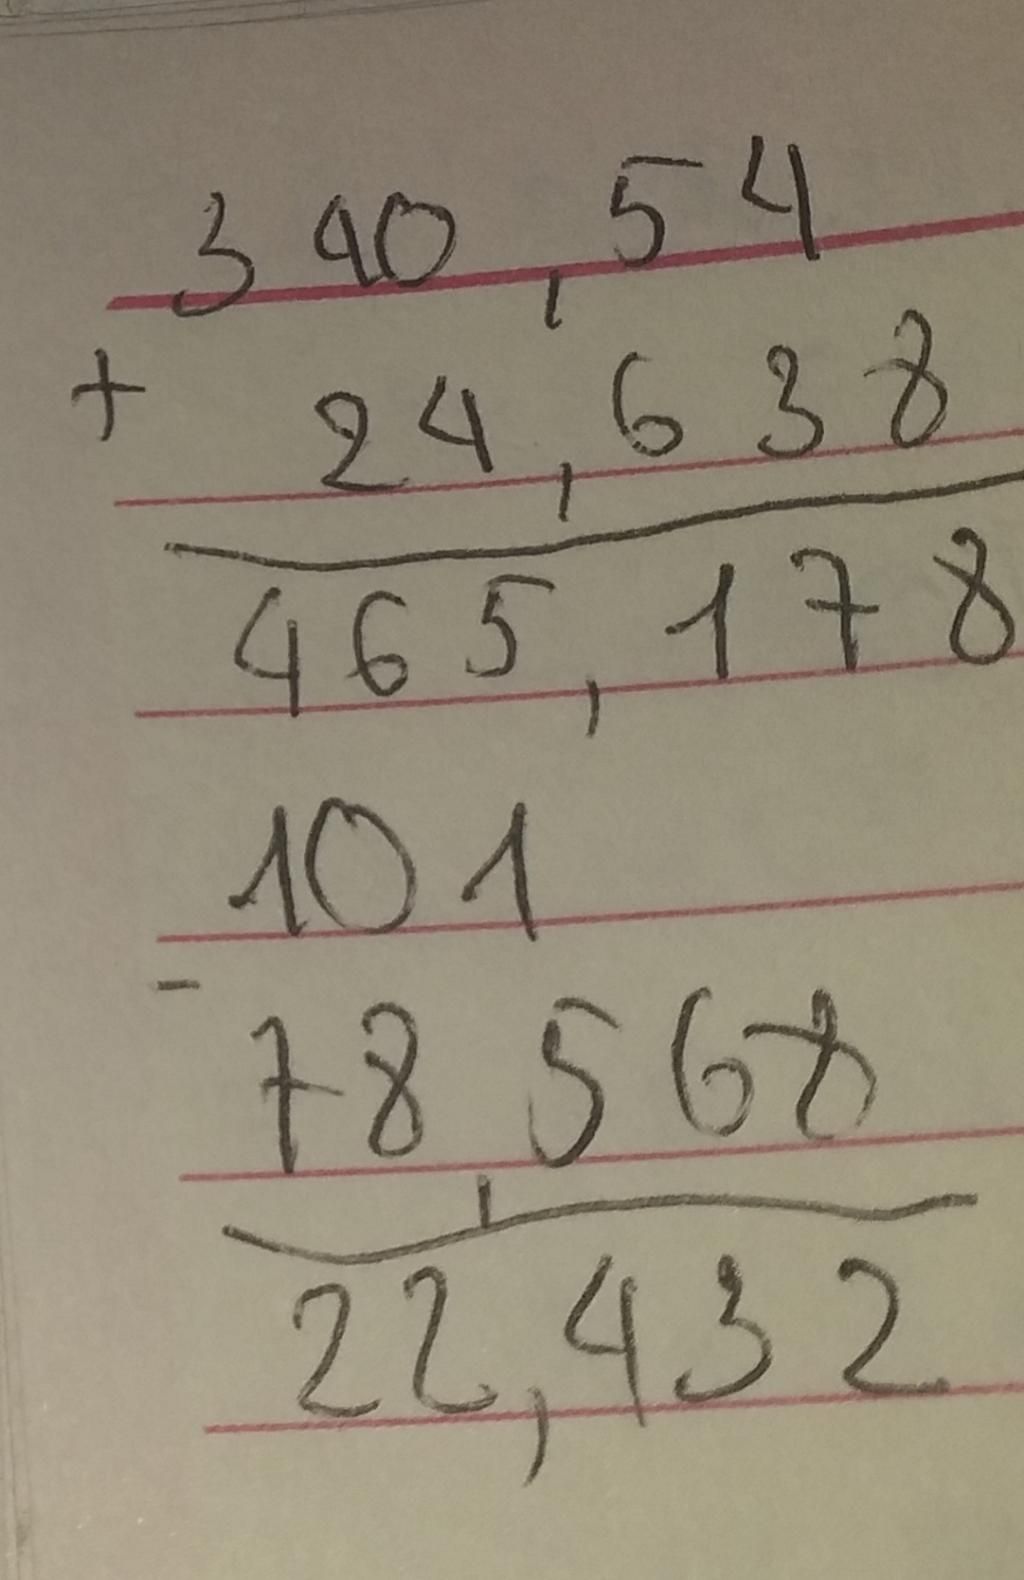 390,54
+ 24,638
465,178
101
- 78,568
22,432